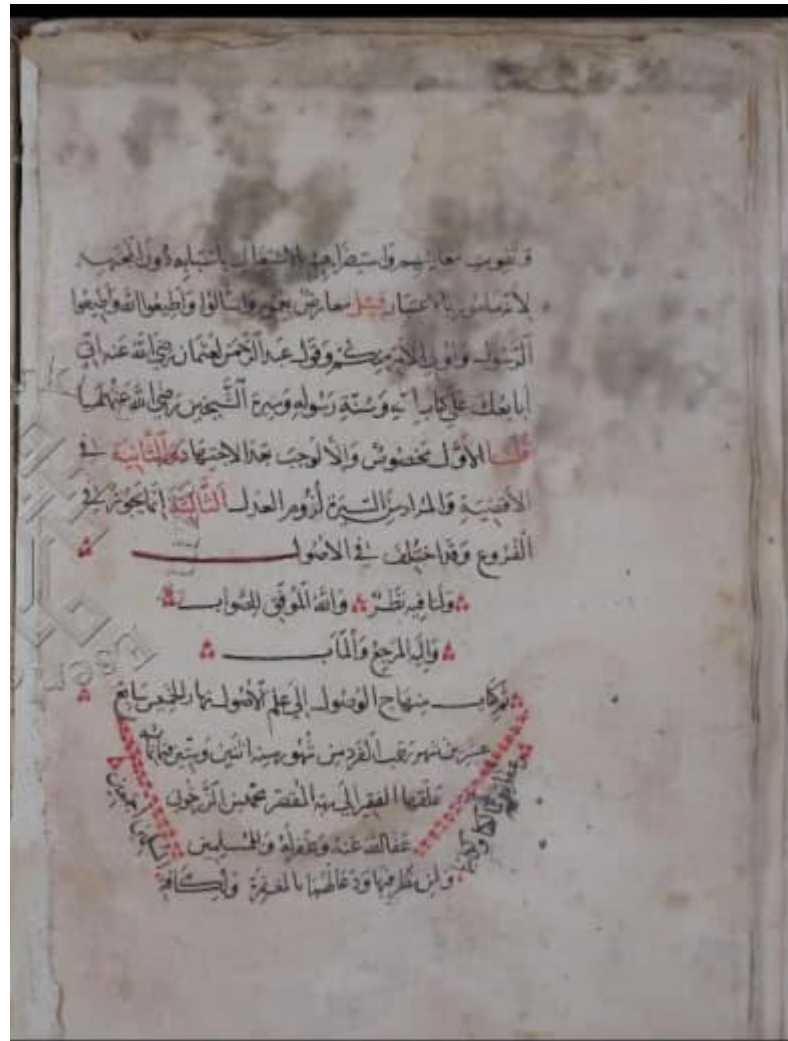 وتفويت معايشهم واستضرارهم بالاشتغال باسبابه دون المجتهد
لأنه مأمور بالاعتبار قيل معارض بعموم فاسألوا وأطيعوا الله وأطيعوا
الرسول وأولي الأمر منكم وقول عبد الرحمن لعثمان رضي الله عنه
أبايعك على كتاب الله وسنة رسوله وسيرة الشيخين رضي الله عنهما
قلنا الأول مخصوص وإلا لوجب بعد الاجتهاد والثانية في
الأقضية والمراد من السيرة لزوم العدل الثالثة إنما يجوز في
الفروع وقد اختلف في الأصول
ولنا فيه نظر والله الموفق للصواب
وإليه المرجع والمآب
تم كتاب منهاج الوصول إلى علم الأصول نهار الجمعة سابع
عشرين شهر رجب الفرد من شهور سنة اثنين وستين
علقها الفقير إلى محمد بن
عفا الله عنه وللمسلمين
ولمن نظر فيها ودعا لهما بالمغفرة ولكافة
المسلمين اجمعين